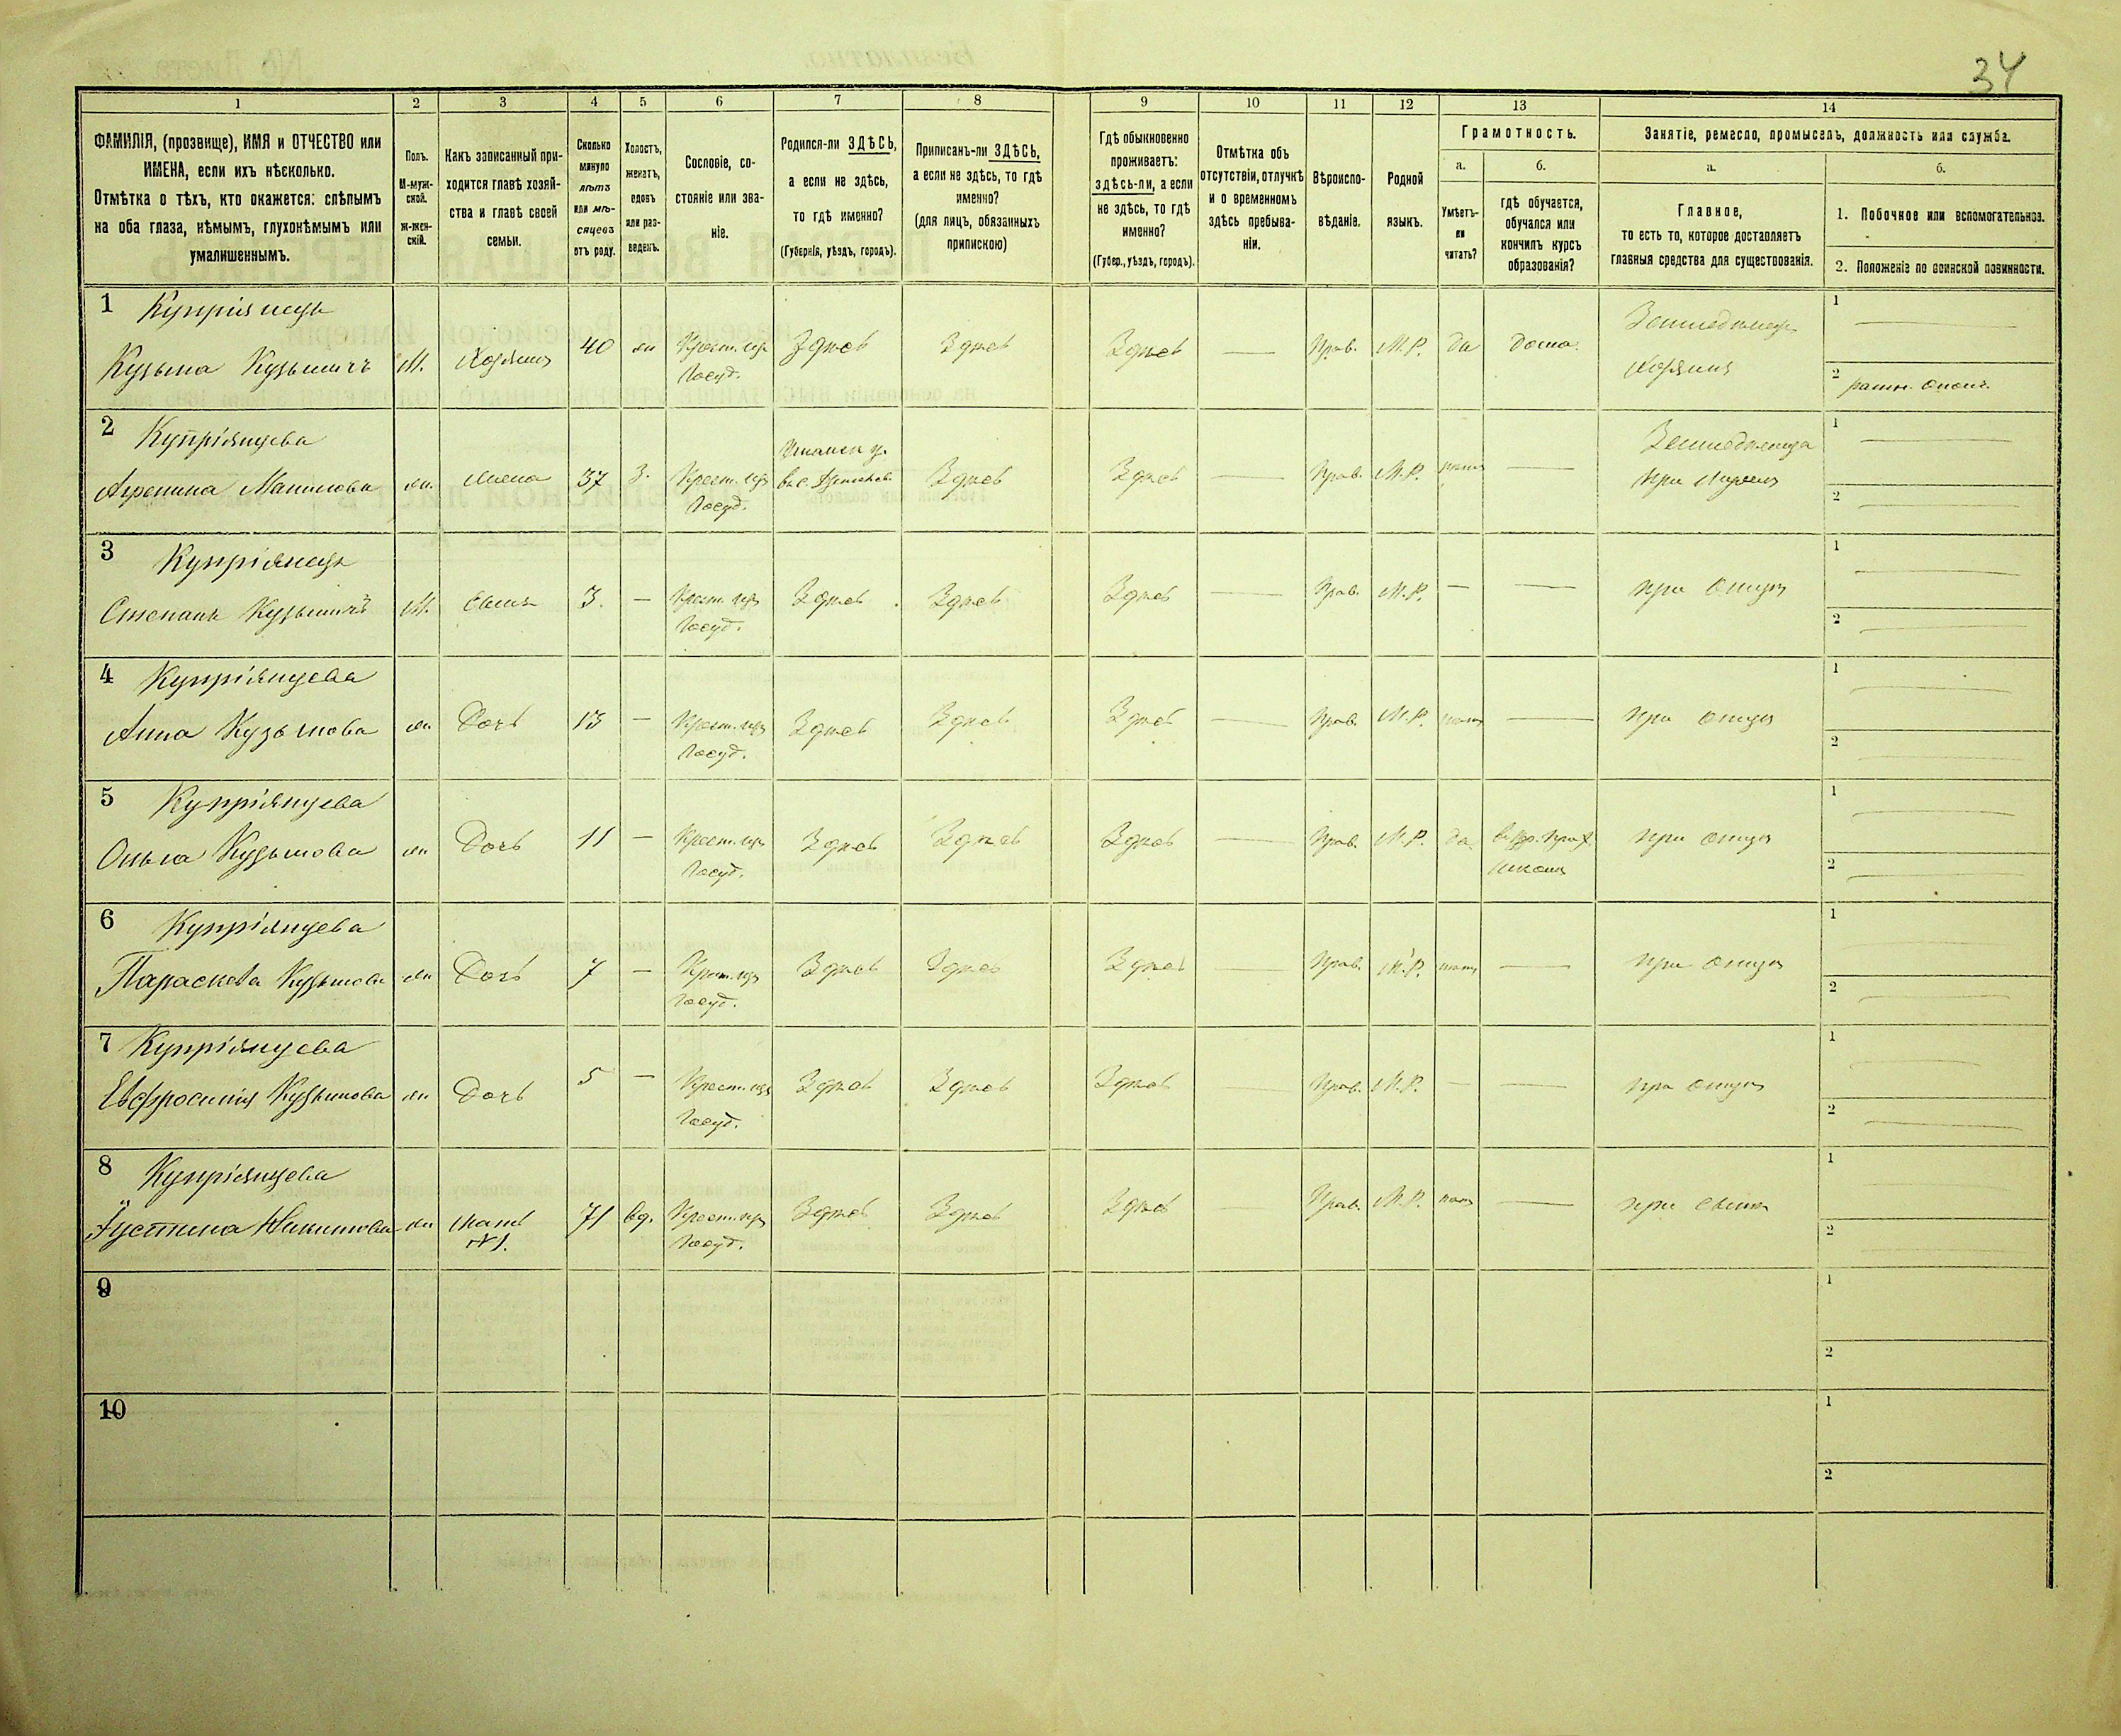 34
1 2 3 4 5 6 7 8 9 10 11 12 13 14
ФАМИЛІЯ, (прозвище), ИМЯ и ОТЧЕСТВО или
ИМЕНА, если ихъ нѣсколько.
Отмѣтка о тѣхъ, кто окажется: слѣпымъ
на оба глаза, нѣмымъ, глухонѣмымъ или
умалишеннымъ.
Полъ.
М-муж-
ской.
ж-жен-
скій.
Какъ записанный при-
ходится главѣ хозяй-
ства и главѣ своей
семьи.
Сколько
минуло
лѣтъ
или мѣ-
сяцевъ
отъ роду.
Холостъ,
женатъ,
вдовъ
или раз-
веденъ.
Сословіе, со-
стояніе или зва-
ніе.
Родился-ли ЗДѢСЬ,
а если не здѣсь,
то гдѣ именно?
(Губернія, уѣздъ, городъ).
Приписанъ-ли ЗДѢСЬ,
а если не здѣсь, то гдѣ
именно?
(для лицъ, обязанныхъ
припискою)
Гдѣ обыкновенно
проживаетъ:
здѣсь-ли, а если
не здѣсь, то гдѣ
именно?
(Губер., уѣздъ, городъ).
Отмѣтка объ
отсутствіи, отлучкѣ
и о временномъ
здѣсь пребыва-
ніи.
Вѣроиспо-
вѣданіе.
Родной
языкъ.
Грамотность.
а.
Умѣетъ-
ли
читать?
б.
гдѣ обучается,
обучался или
кончилъ курсъ
образованія?
Занятіе, ремесло, промыселъ, должность или служба.
а.
Главное,
то есть то, которое доставляетъ
главныя средства для существованія.
б.
1. Побочное или вспомогательное.
2. Положеніе по воинской повинности.
1 Купріянецъ Земледѣлецъ 1
Кузьма Кузьмичъ М. Хозяинъ 40 жн Крест. изъ Здѣсь Здѣсь Здѣсь — Прав. М.Р. да дома. Хозяинъ
Госуд. 2 ратн. ополч.
2 Купріянцева Земледѣлица 1
Агрепина Манилова жн. жена 37 З. Крест. изъ Здѣсь Здѣсь — Прав. М.Р. нѣтъ — при
Госуд. 2
3 Купріянецъ 1
Степанъ Кузьмичъ М. сынъ 3. — Крест. изъ Здѣсь Здѣсь Здѣсь — Прав. М.Р. — — при отцѣ
Госуд. 2
4 Купріянцева 1
Анна Кузьмова жн Дочь 13 — Крест. изъ Здѣсь Здѣсь Здѣсь — Прав. М.Р. нѣтъ — при отцѣ
Госуд. 2
5 Купріянцева 1
Ольга Кузьмова жн Дочь 11 — Крест. изъ Здѣсь Здѣсь Здѣсь — Прав. М.Р. да. при отцѣ
Госуд. школѣ 2
6 Купріянцева 1
Параскева Кузьмова жн Дочь 7 — Крест. изъ Здѣсь Здѣсь Здѣсь — Прав. М.Р. нѣтъ — при отцѣ
Госуд. 2
7 Купріянцева 1
Евфросинія Кузьмова жн Дочь 5 — Крест. изъ Здѣсь Здѣсь Здѣсь — Прав. М.Р. — — при отцѣ
Госуд. 2
8 Купріянцева 1
Устина Никитова жн мать 71 вд. Крест. изъ Здѣсь Здѣсь Здѣсь — Прав. М.Р. нѣтъ — при сынѣ
№1. Госуд. 2
9 1
2
10 1
2